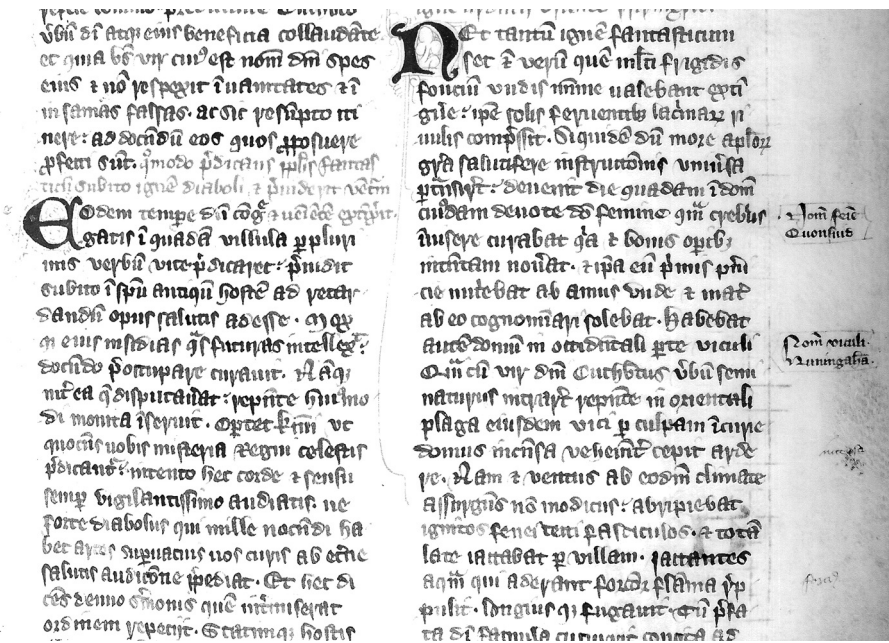 vͤbū dī atqꝫ eius beneficia collaudate
et quia bs̄ vir cuiꝰ est nom̄ dn̄i spes
eius ⁊ nō respexit ī uanitates ⁊ ī
insanias falsas. ac sic resūpto iti
nere: ad docēdū eos quos ꝓposuere
ꝓfecti sūt. qͦmodo p̄dicans pplis fantas
ticū subito ignē diaboli ⁊ p̄uiderit
Eodem tempe dū
gatis ī quadā villula ꝑ pluri
mis verbū vite p̄dicaret: p̄uidit
subito ī spū antiquū hostē ad retar
dandū opus salutis adesse. Moxqꝫ
eius insidias qͣs futuras intellex̄:
docēdo p̄occupare curauit. Nāqꝫ
int̄ ea q̄ disputauat: repēte huiꝰmo
di monita īseruit. Oportet km̄i vt
quociēs uobis misteria Regni celestis
p̄dicant̄: intento hec corde ⁊ sensu
semꝑ vigilantissimo audiatis. ne
forte diabolus qui mille nocēdi ha
bet artes supuacuis uos curis ab et̄ne
salutis audicōne īpediat. Et hec di
cēs denuo s̄monis quē int̄miserat
ordinem repetiit. Statimqꝫ hostis
Nec tantū ignē fantasticum
set ⁊ verū quē ml̄ti frigidis
fonciū vndis mīme ualebant exti
gūe: ipse solis feruentibꝫ lacrimaꝝ ri
uulis comp̄ssit. Siquidē dū more aplōꝝ
grā salutifere instructionis vniūsa
ꝑtrāsirēt: deuenit die quadam ī dom̄
cuiꝰdam deuote dō femine qm̄ crebriꝰ
īuisere curabat qͣ ⁊ bonis opibꝫ
intētam nouāt. ⁊ ipā eū p̄mis pūi
cie nut̄ebat ab annis vnde ⁊ mat̄
ab eo cognominari solebat. Habebat
autē domū in occidētali ꝑte viculi
Qm̄ cū vir dn̄i Cuthb̄tus v̄bū semi
naturus intrarēt repēte in orientali
plaga eiusdem vici ꝑ culpam īcurie
domus incēsa vehemēt̄ cepit arde
re. Nam ⁊ ventus ab eodm̄ climate
assurgēs nō modicus: abripiebat
ignitos feneī tecti fasticulos. ⁊ totā
late iactabat ꝑ villam. Iactantes
aqm̄ qui aderant forcōr flāma rep
pulit. longius qꝫ fugauit. Tū p̄fa
ta dī famula cucurrit concita ad
Nom̄ feīe
Quonsuid
Nom̄ viculi
Runingahā.